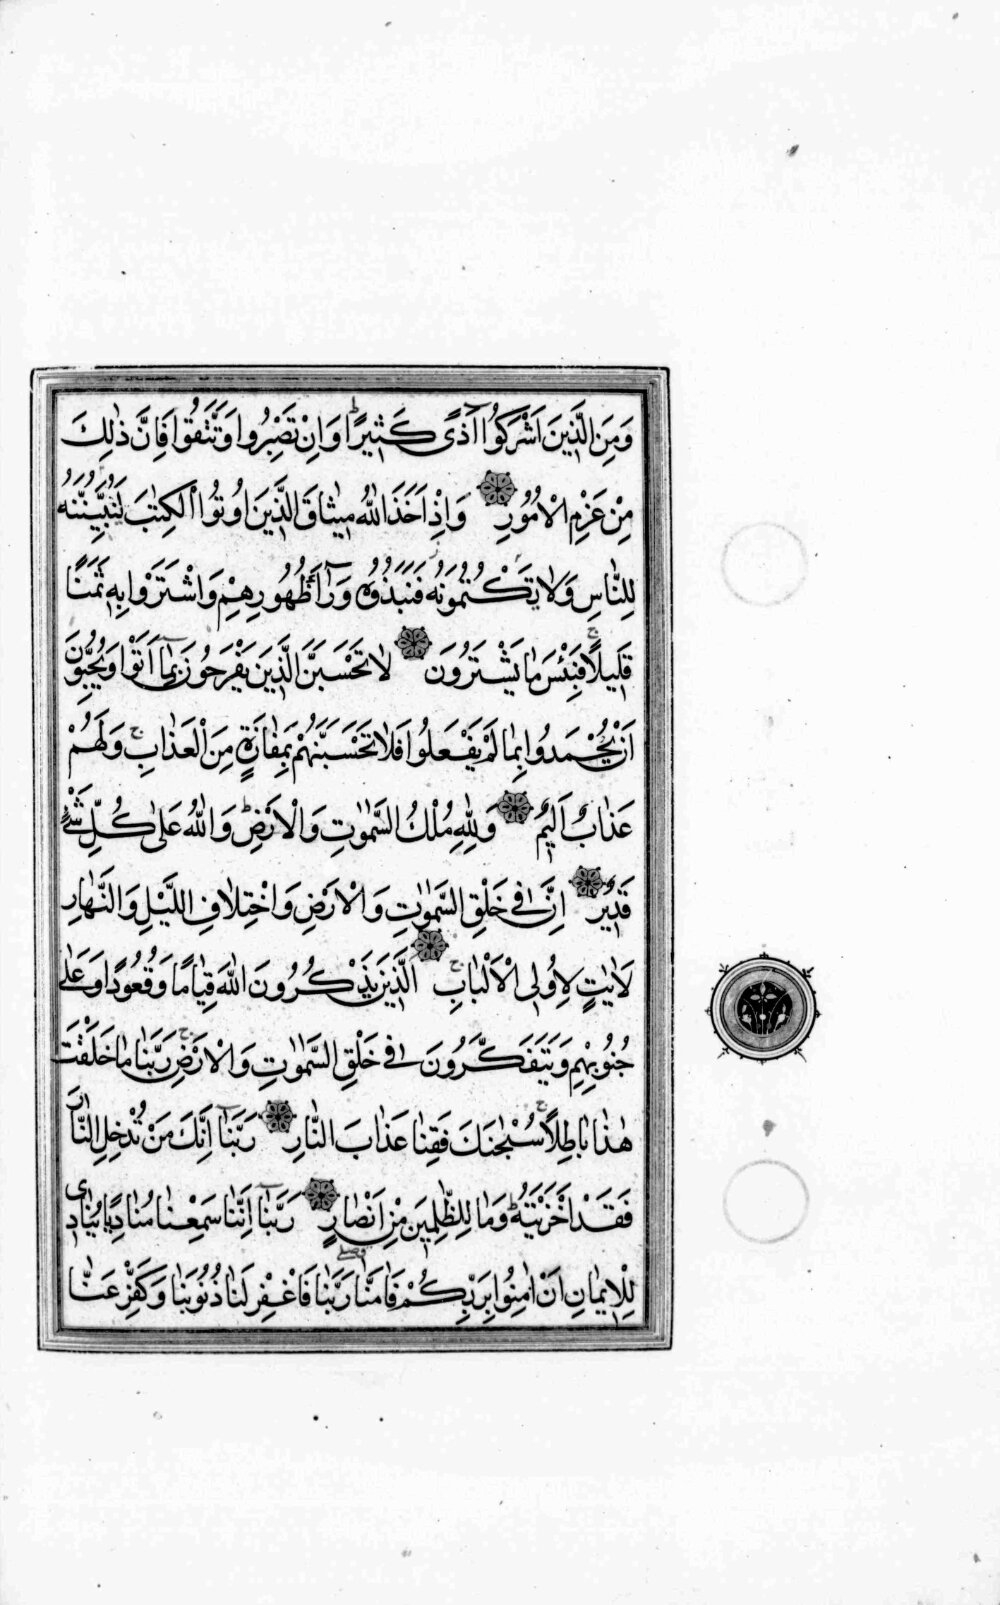 وَمِنَ الَّذِينَ اَشْرَكُوا اَذًى كَثِيرًا وَاِنْ تَصْبِرُوا وَتَتَّقُوا فَاِنَّ ذٰلِكَ
مِنْ عَزْمِ الْاُمُورِ وَاِذْ اَخَذَ اللّٰهُ مِيثَاقَ الَّذِينَ اُوتُوا الْكِتٰبَ لَتُبَيِّنُنَّهُ
لِلنَّاسِ وَلَا تَكْتُمُونَهُ فَنَبَذُوهُ وَرَٓاءَ ظُهُورِهِمْ وَاشْتَرَوْا بِهِ ثَمَنًا
قَلِيلًا فَبِئْسَ مَا يَشْتَرُونَ لَا تَحْسَبَنَّ الَّذِينَ يَفْرَحُونَ بِمَٓا اَتَوْا وَيُحِبُّونَ
اَنْ يُحْمَدُوا بِمَا لَمْ يَفْعَلُوا فَلَا تَحْسَبَنَّهُمْ بِمَفَازَةٍ مِنَ الْعَذَابِ ج وَلَهُمْ
عَذَابٌ اَلِيمٌ وَلِلّٰهِ مُلْكُ السَّمٰوٰتِ وَالْاَرْضِ ط وَاللّٰهُ عَلٰى كُلِّ شَيْءٍ
قَدِيرٌ اِنَّ فِي خَلْقِ السَّمٰوٰتِ وَالْاَرْضِ وَاخْتِلَافِ اللَّيْلِ وَالنَّهَارِ
لَاٰيٰتٍ لِاُولِي الْاَلْبَابِ ج الَّذِينَ يَذْكُرُونَ اللّٰهَ قِيَامًا وَقُعُودًا وَعَلٰى
جُنُوبِهِمْ وَيَتَفَكَّرُونَ فِي خَلْقِ السَّمٰوٰتِ وَالْاَرْضِ ج رَبَّنَا مَا خَلَقْتَ
هٰذَا بَاطِلًا ج سُبْحٰنَكَ فَقِنَا عَذَابَ النَّارِ رَبَّنَٓا اِنَّكَ مَنْ تُدْخِلِ النَّارَ
فَقَدْ اَخْزَيْتَهُ ط وَمَا لِلظّٰلِمِينَ مِنْ اَنْصَارٍ رَبَّنَٓا اِنَّنَا سَمِعْنَا مُنَادِيًا يُنَادِي
لِلْاِيمَانِ اَنْ اٰمِنُوا بِرَبِّكُمْ فَاٰمَنَّا رَبَّنَا فَاغْفِرْ لَنَا ذُنُوبَنَا وَكَفِّرْ عَنَّا